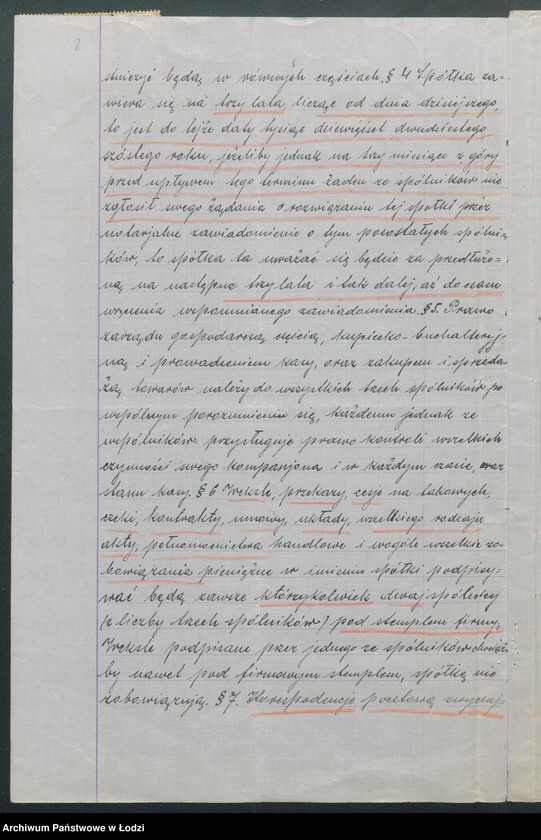 8
stniczyć będą w równych częściach. § 4 Spółka za=
wiera się na trzy lata, licząc od dnia dzisiejszego,
to jest do tejże daty tysiąc dziewięćset dwudziestego
szóstego roku, jeżeliby jednak na trzy miesiące z góry
przed upływem tego terminu żaden ze spólników nie
zgłosił swego żądania o rozwiązaniu tej spółki przez
notarjalne zawiadomienie o tym pozostałych spólni=
ków, to spółka ta uważać się będzie za przedłużo=
ną na następne trzy lata i tak dalej, aż do czasu
wręczenia wspomnianego zawiadomienia. § 5. Prawo
zarządu gospodarczą częścią, kupiecko-buchalteryj=
ną i prowadzeniem kasy, oraz zakupem i sprzeda=
żą towarów należy do wszystkich trzech spólników po
wspólnym porozumieniu się, każdemu jednak ze
wspólników przysługuje prawo kontroli wszelkich
czynności swego kompanjona i w każdym czasie, oraz
stanu kasy. § 6 Weksle, przekazy, cesje na takowych,
czeki, kontrakty, umowy, układy, wszelkiego rodzaju
akty, pełnomocnictwa handlowe i wogóle wszelkie zo=
bowiązania pieniężne w imieniu spółki podpisy=
wać będą zawsze którzykolwiek dwaj spólnicy
(z liczby trzech spólników) pod stemplem firmy.
Weksle podpisane przez jednego ze spólników chociaż
by nawet pod firmowym stemplem, spółkę nie
zobowiązują. § 7. Korespodencję pocztową zwyczaj=
Archiwum Państwowe w Łodzi